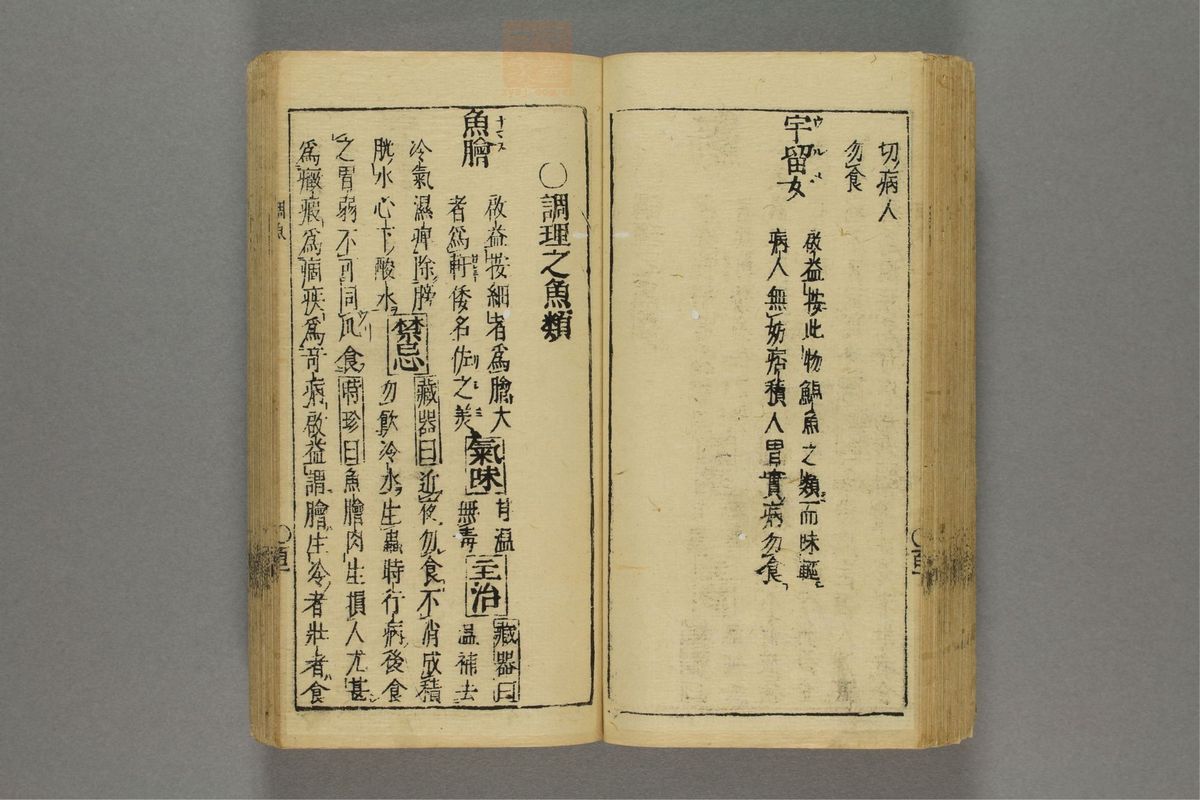 切病人
勿食
宇留女
ウルメ
啟益按此物鰯魚之類而味輕
病人無妨痞積人胃實病勿食
○調理之魚類
魚膾
ナマス
啟益按細者爲膾大
者爲軒倭名佐之美
氣味
甘温
無毒
主治
藏器曰
温補去
冷氣濕痺除膀
胱水心下酸水
禁忌
藏器曰近夜勿食不消成積
勿飲冷水生蟲時行病後食
之胃弱不可同瓜食時珍曰魚膾肉生損人尤甚
爲癥瘕爲痼疾爲奇病啟益謂膾生冷者壯者食